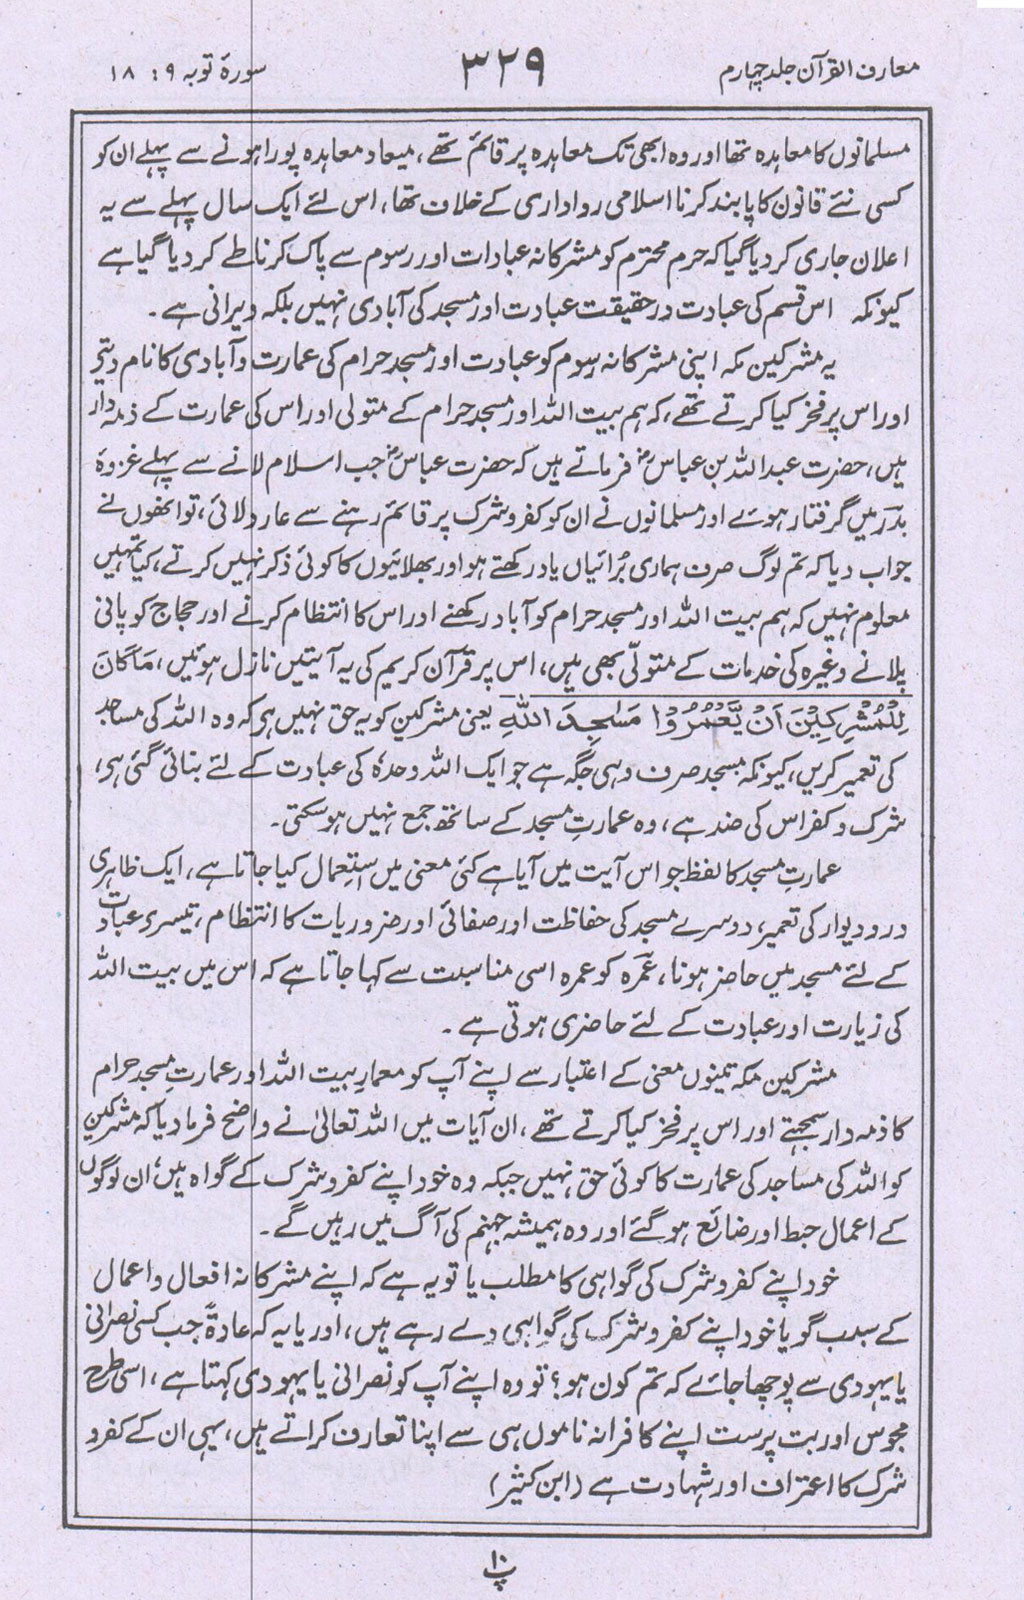 معارف القرآن جلد چہارم
۳۲۹
سورۂ توبہ ۹ : ۱۸
مسلمانوں کا معاہدہ تھا اور وہ ابھی تک معاہدہ پر قائم تھے، میعاد معاہدہ پورا ہونے سے پہلے ان کو
کسی نئے قانون کا پابند کرنا اسلامی رواداری کے خلاف تھا، اس لئے ایک سال پہلے سے یہ
اعلان جاری کر دیا گیا کہ حرم محترم کو مشرکانہ عبادات اور رسوم سے پاک کرنا طے کر دیا گیا ہے
کیونکہ اس قسم کی عبادت در حقیقت عبادت اور مسجد کی آبادی نہیں بلکہ ویرانی ہے۔
یہ مشرکین مکہ اپنی مشرکانہ رسوم کو عبادت اور مسجد حرام کی عمارت و آبادی کا نام دیتے
اور اس پر فخر کیا کرتے تھے، کہ ہم بیت اللہ اور مسجد حرام کے متولی اور اس کی عمارت کے ذمہ دار
ہیں، حضرت عبد اللہ بن عباسؓ فرماتے ہیں کہ حضرت عباسؓ جب اسلام لانے سے پہلے غزوۂ
بدر میں گرفتار ہوئے اور مسلمانوں نے ان کو کفر و شرک پر قائم رہنے سے عار دلائی، تو انھوں نے
جواب دیا کہ تم لوگ صرف ہماری بُرائیاں یاد رکھتے ہو اور بھلائیوں کا کوئی ذکر نہیں کرتے، کیا تمہیں
معلوم نہیں کہ ہم بیت اللہ اور مسجد حرام کو آباد رکھنے اور اس کا انتظام کرنے اور حجاج کو پانی
پلانے وغیرہ کی خدمات کے متولّی بھی ہیں، اس پر قرآن کریم کی یہ آیتیں نازل ہوئیں، مَا كَانَ
لِلْمُشْرِكِيْنَ اَنْ يَّعْمُرُوْا مَسٰجِدَ اللّٰهِ یعنی مشرکین کو یہ حق نہیں ہے کہ وہ اللہ کی مساجد
کی تعمیر کریں، کیونکہ مسجد صرف وہی جگہ ہے جو ایک اللہ وحدہٗ کی عبادت کے لئے بنائی گئی ہے،
شرک و کفر اس کی ضد ہے، وہ عمارتِ مسجد کے ساتھ جمع نہیں ہو سکتی۔
عمارتِ مسجد کا لفظ جو اس آیت میں آیا ہے کئی معنی میں استعمال کیا جاتا ہے، ایک ظاہری
در و دیوار کی تعمیر، دوسرے مسجد کی حفاظت اور صفائی اور ضروریات کا انتظام، تیسری عبادت
کے لئے مسجد میں حاضر ہونا، عمرہ کو عمرہ اسی مناسبت سے کہا جاتا ہے کہ اس میں بیت اللہ
کی زیارت اور عبادت کے لئے حاضری ہوتی ہے۔
مشرکین مکہ تینوں معنی کے اعتبار سے اپنے آپ کو معمارِ بیت اللہ اور عمارتِ مسجد حرام
کا ذمہ دار سمجھتے اور اس پر فخر کیا کرتے تھے، ان آیات میں اللہ تعالیٰ نے واضح فرما دیا کہ مشرکین
کو اللہ کی مساجد کی عمارت کا کوئی حق نہیں جبکہ وہ خود اپنے کفر و شرک کے گواہ ہیں، ان لوگوں
کے اعمال حبط اور ضائع ہو گئے اور وہ ہمیشہ جہنم کی آگ میں رہیں گے۔
خود اپنے کفر و شرک کی گواہی کا مطلب یا تو یہ ہے کہ اپنے مشرکانہ افعال و اعمال
کے سبب گویا خود اپنے کفر و شرک کی گواہی دے رہے ہیں، اور یا یہ کہ عادۃً جب کسی نصرانی
یا یہودی سے پوچھا جائے کہ تم کون ہو؟ تو وہ اپنے آپ کو نصرانی یا یہودی کہتا ہے، اسی طرح
مجوس اور بت پرست اپنے کافرانہ ناموں ہی سے اپنا تعارف کراتے ہیں، یہی ان کے کفر و
شرک کا اعتراف اور شہادت ہے (ابن کثیر)
پ۱۰